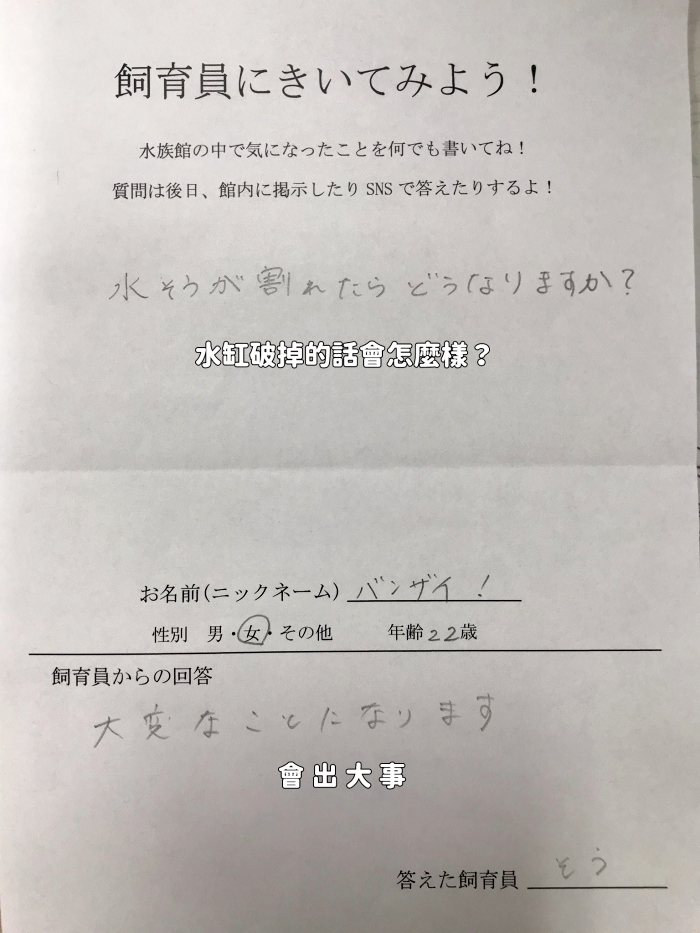 飼育員にきいてみよう！
水族館の中で気になったことを何でも書いてね！
質問は後日、館内に掲示したり SNS で答えたりするよ！
水そうが割れたらどうなりますか？
水缸破掉的話會怎麼樣？
お名前(ニックネーム) バンザイ！
性別 男・女・その他 年齢 22歳
飼育員からの回答
大変なことになります
會出大事
答えた飼育員 そう